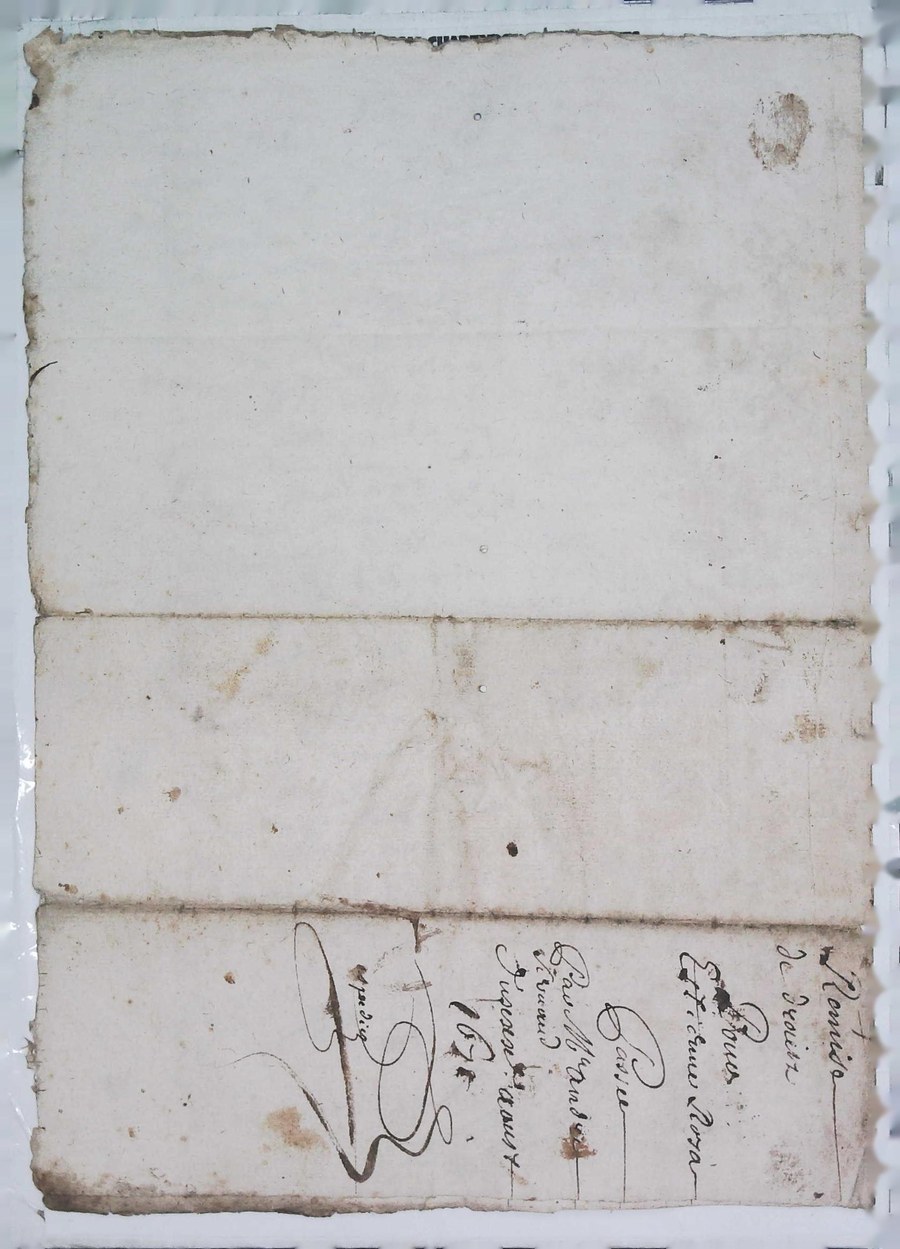 Remise
de droictz
Pour
Estienne Rosa
Passee
Par Mr andre
aoust
167
expedieé